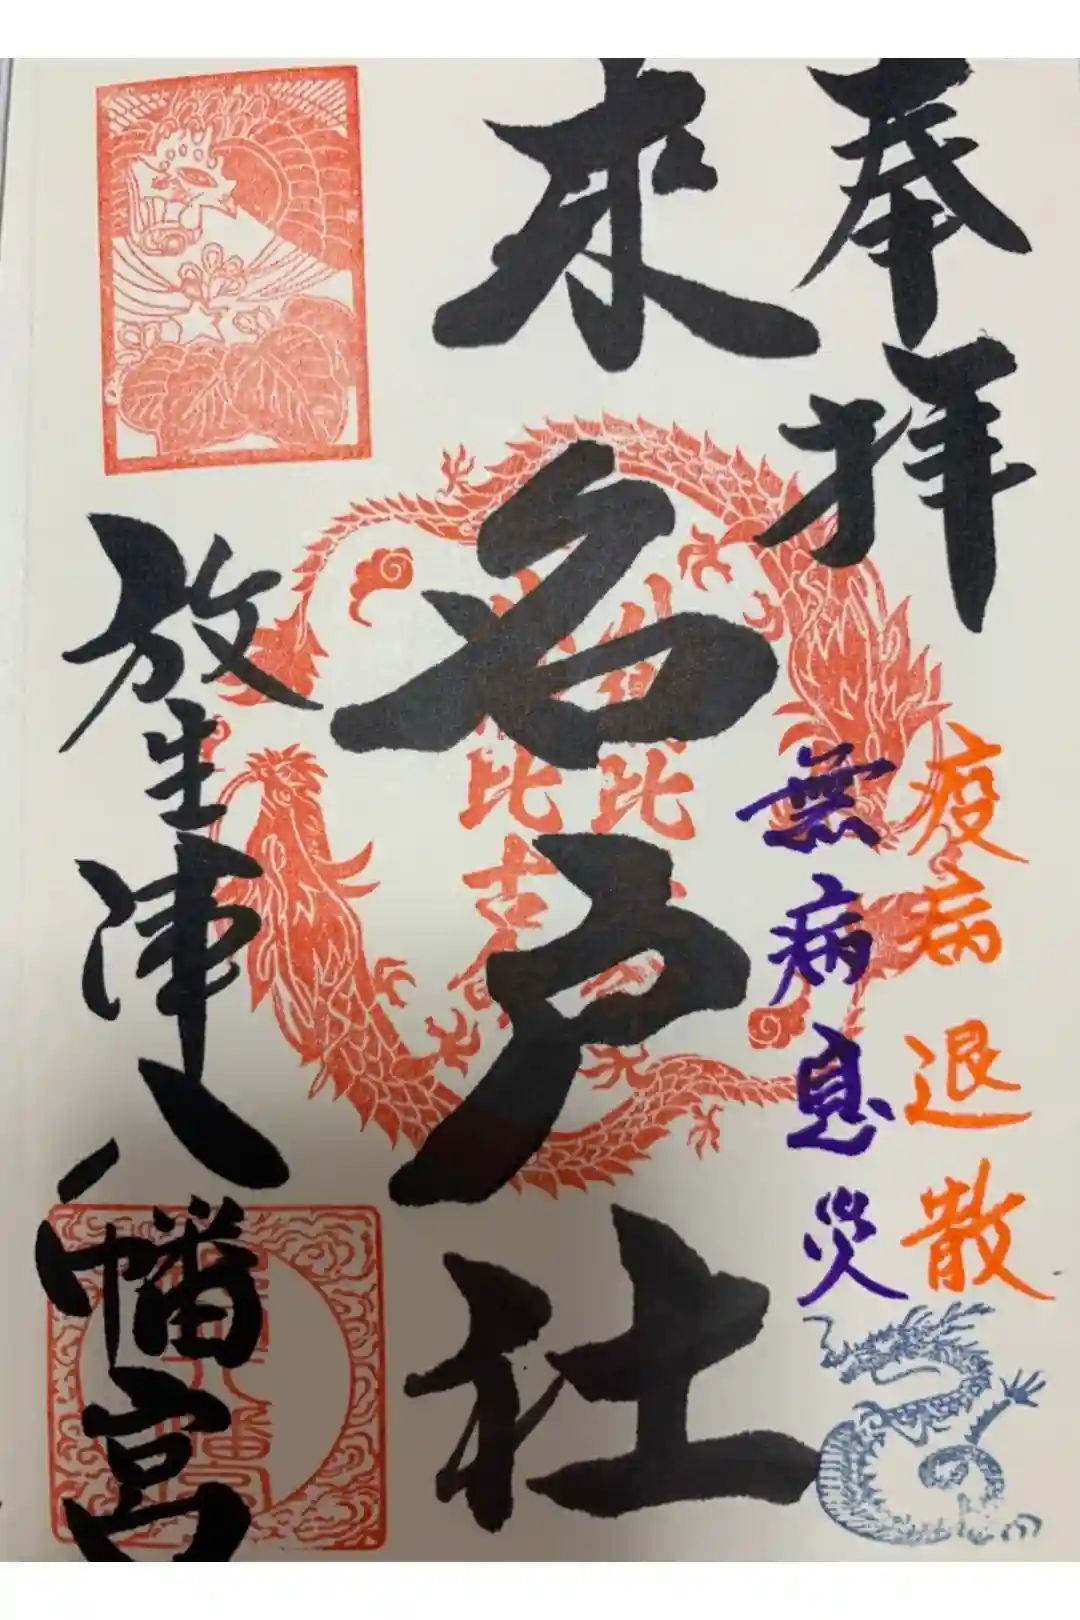 奉拝
疫病退散
無病息災
来名戸社
放生津八幡宮